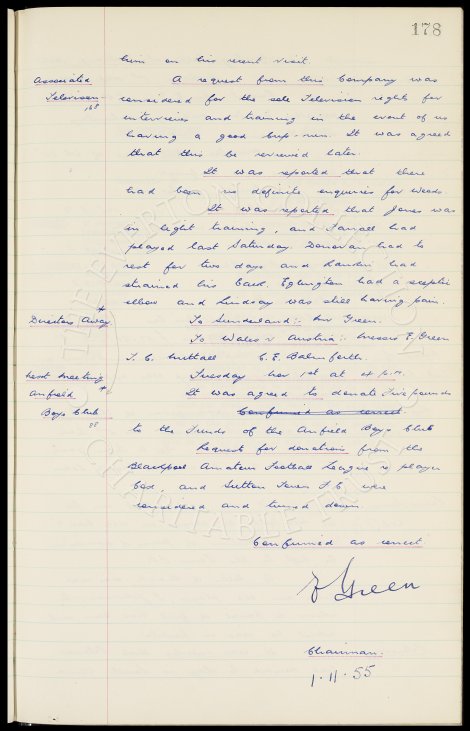 178
him on his recent visit.
Associated
Television
68
A request from this Company was
considered for the sole Television rights for
interviews and training in the event of us
having a good Cup-run. It was agreed
that this be reviewed later.
It was reported that there
had been no definite enquiries for Woods
It was reported that Jones was
in light training, and Farrall had
played last Saturday. Donovan had to
rest for two days and Rankin had
strained his back. Eglington had a sceptic
elbow and Lindsay was still having pain.
Directors Away
To Sunderland:- Mr Green.
To Wales v Austria:- Messrs E. Green
T. C. Nuttall C. E. Balmforth.
Next Meeting
Tuesday Nov 1st at 4 p.m.
Anfield
Boys Club
It was agreed to donate Five pounds
Confirmed as correct
to the Funds of the Anfield Boys Club
Request for donations from the
Blackpool Amateur Football League re player
Cox, and Sutton Town F.C. were
considered and turned down
Confirmed as correct
E Green
Chairman.
1.11.55
THE EVERTON
CHARITABLE TRUST